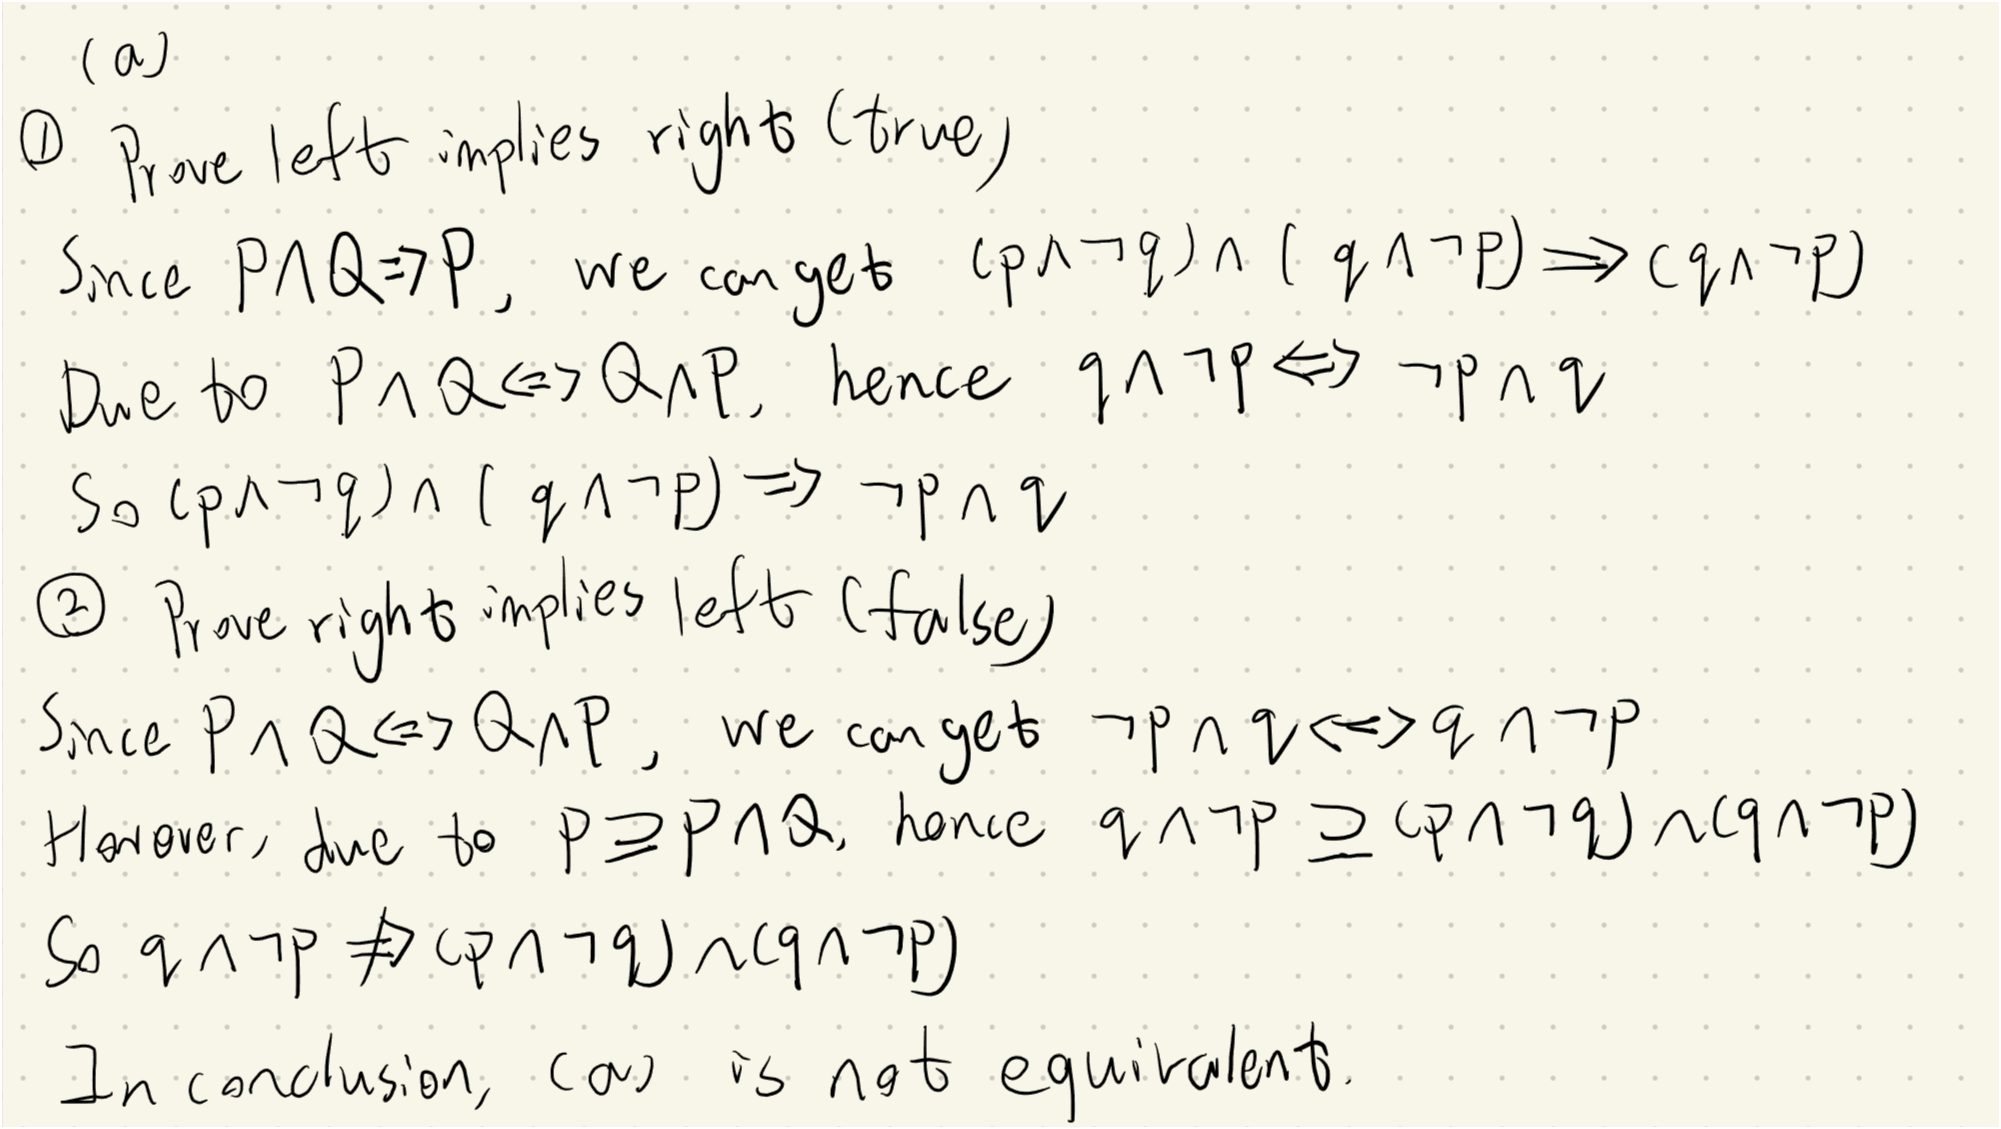 (a)
① Prove left implies right (true)
Since P∧Q⇒P, we can get (p∧¬q)∧(q∧¬p)⇒(q∧¬p)
Due to P∧Q⇔Q∧P, hence q∧¬p⇔¬p∧q
So (p∧¬q)∧(q∧¬p)⇒¬p∧q
② Prove right implies left (false)
Since P∧Q⇔Q∧P, we can get ¬p∧q⇔q∧¬p
However, due to P⊇P∧Q, hence q∧¬p⊇(p∧¬q)∧(q∧¬p)
So q∧¬p⇏(p∧¬q)∧(q∧¬p)
In conclusion, (a) is not equivalent.